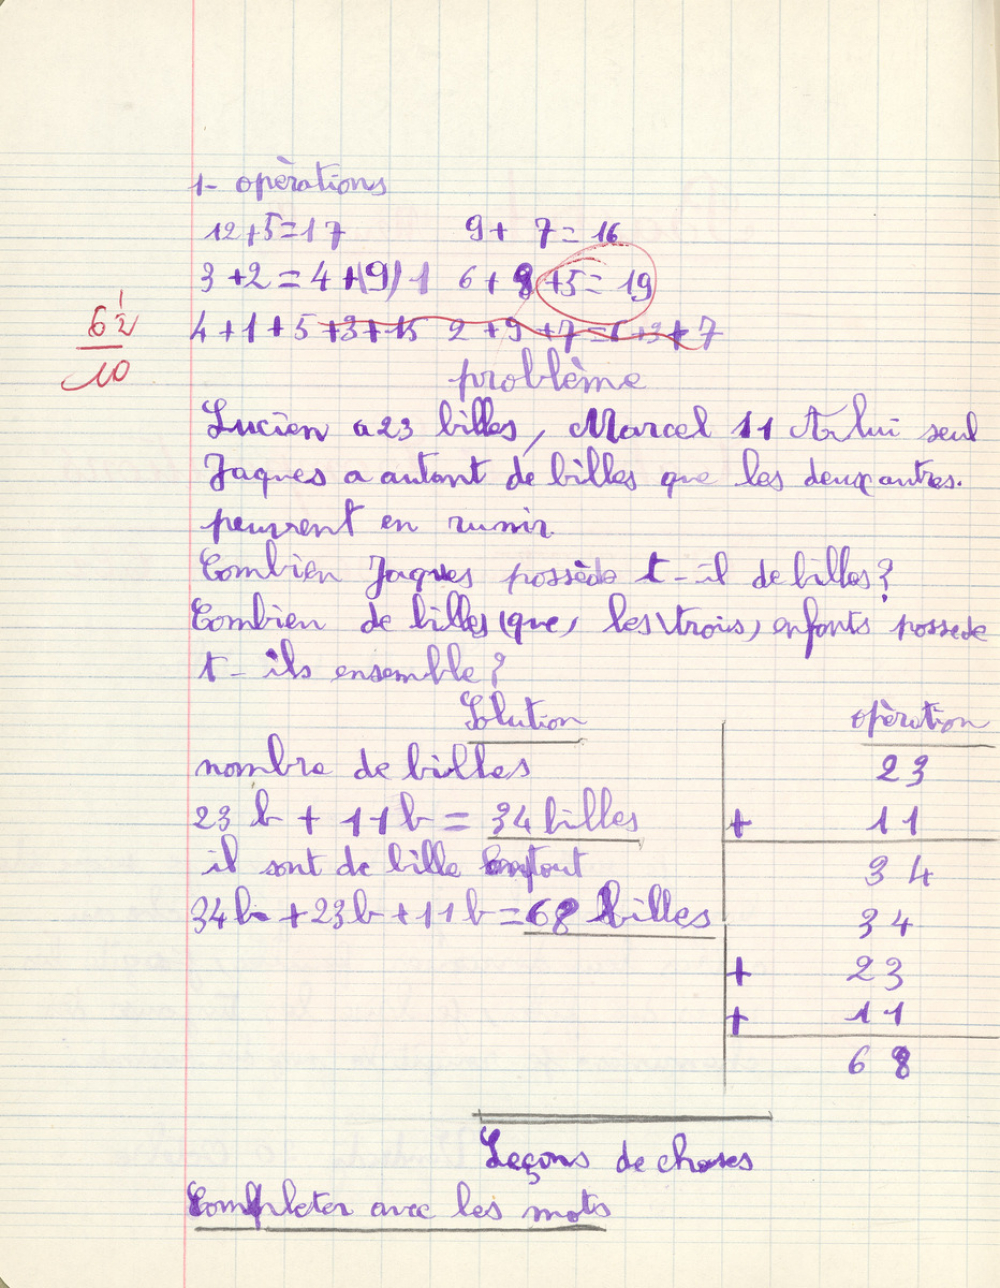 1- opèrations
12+5=17 9+ 7= 16
3+2=4+(9)1 6+8+5=19
6 1/2
10
4+1+5+3+15 2+9+7=1+3+7
problème
Lucien a 23 billes, Marcel 11 A lui seul
Jaques a autant de billes que les deux autres.
peuvent en runir.
Combien Jaques possède t-il de billes?
Combien de billes (que, les trois, enfants possede
t-ils ensemble?
Solution opèration
nombre de billes 23
23 b + 11 b = 34 billes + 11
il sont de bille entout 34
34b + 23b + 11b = 68 billes 34
+ 23
+ 11
68
Leçons de choses
Completer avec les mots